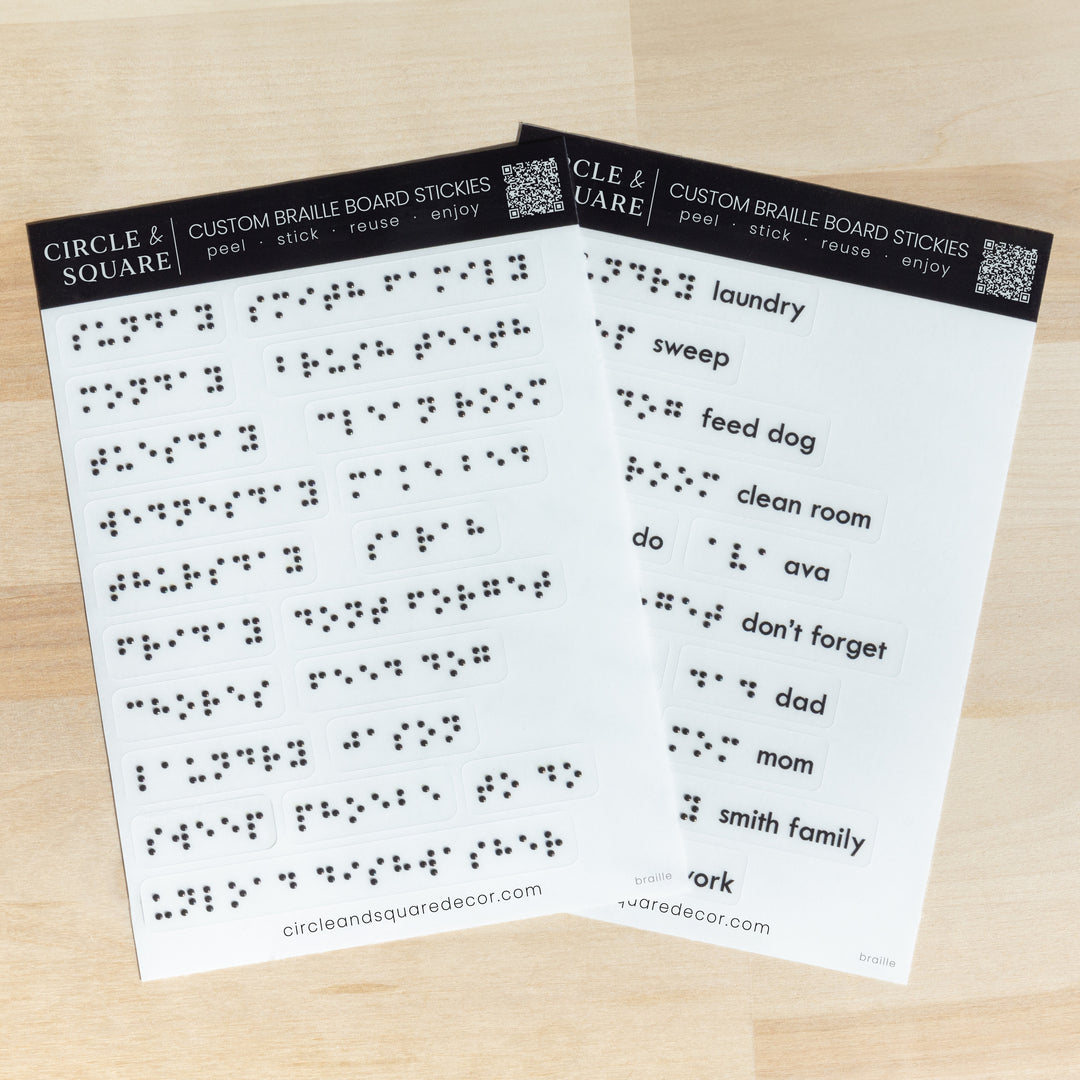 CIRCLE & SQUARE
CUSTOM BRAILLE BOARD STICKIES
peel · stick · reuse · enjoy
⠎⠥⠝⠙⠁⠽
⠎⠍⠊⠞⠓ ⠋⠁⠍⠊⠇⠽
⠍⠕⠝⠙⠁⠽
⠞⠥⠑⠎⠙⠁⠽
⠉⠇⠑⠁⠝ ⠗⠕⠕⠍
⠺⠑⠙⠝⠑⠎⠙⠁⠽
⠞⠓⠥⠗⠎⠙⠁⠽
⠋⠗⠊⠙⠁⠽
⠙⠕⠝⠞ ⠋⠕⠗⠛⠑⠞
⠉⠓⠕⠗⠑⠎
⠋⠑⠑⠙ ⠙⠕⠛
⠇⠁⠥⠝⠙⠗⠽
⠎⠺⠑⠑⠏
⠞⠕ ⠙⠕
circleandsquaredecor.com
braille
CUSTOM BRAILLE BOARD STICKIES
peel · stick · reuse · enjoy
laundry
sweep
feed dog
⠗⠕⠕⠍ clean room
do
⠁⠧⠁ ava
don't forget
⠙⠁⠙ dad
⠍⠕⠍ mom
smith family
braille